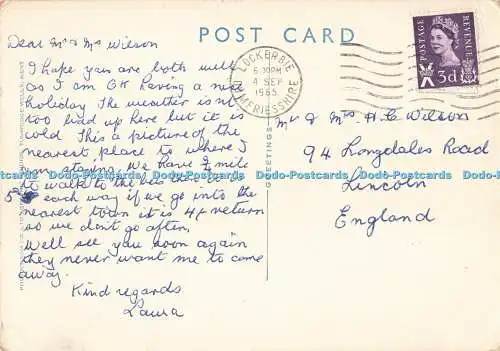 POST CARD
POSTAGE
REVENUE
3d
LOCKERBIE
6.30PM
4 SEP
1965
DUMFRIESSHIRE
Dear Mr & Mrs Wilson
I hope you are both well
as I am OK having a nice
holiday. The weather isn't
too bad up here but it is
cold. This a picture of the
nearest place to where I
am staying. We have 1 mile
to walk to the bus then it is
5 each way if we go into the
nearest town it is 4/- return
so we don't go often.
Well see you soon again
they never want me to come
away.
Kind regards
Laura
GREETINGS
Mr & Mrs H. C Wilson
94 Longdales Road
Lincoln
England
Dodo-Postcard